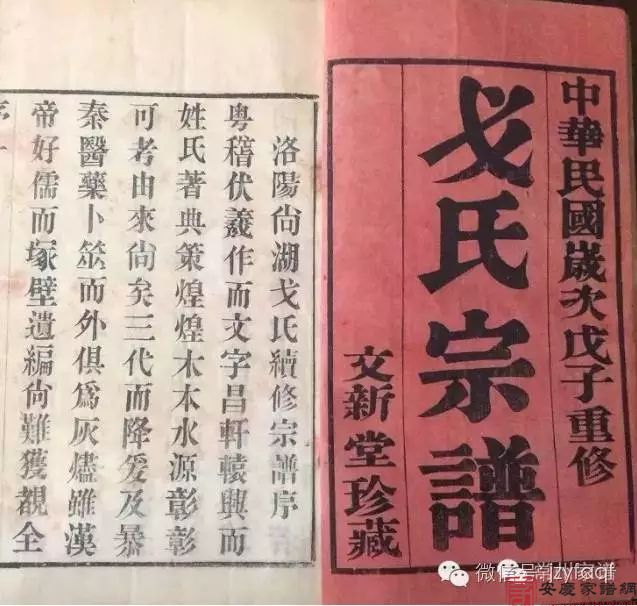 中華民國歲次戊子重修
戈氏宗譜
文新堂珍藏
洛陽尙湖戈氏續修宗譜序
粵稽伏羲作而文字昌軒轅興而
姓氏著典策煌煌木本水源彰彰
可考由來尙矣三代而降爰及暴
秦醫藥卜筮而外俱爲灰燼雖漢
帝好儒而塚壁遺編尙難獲覩全
安慶家譜網